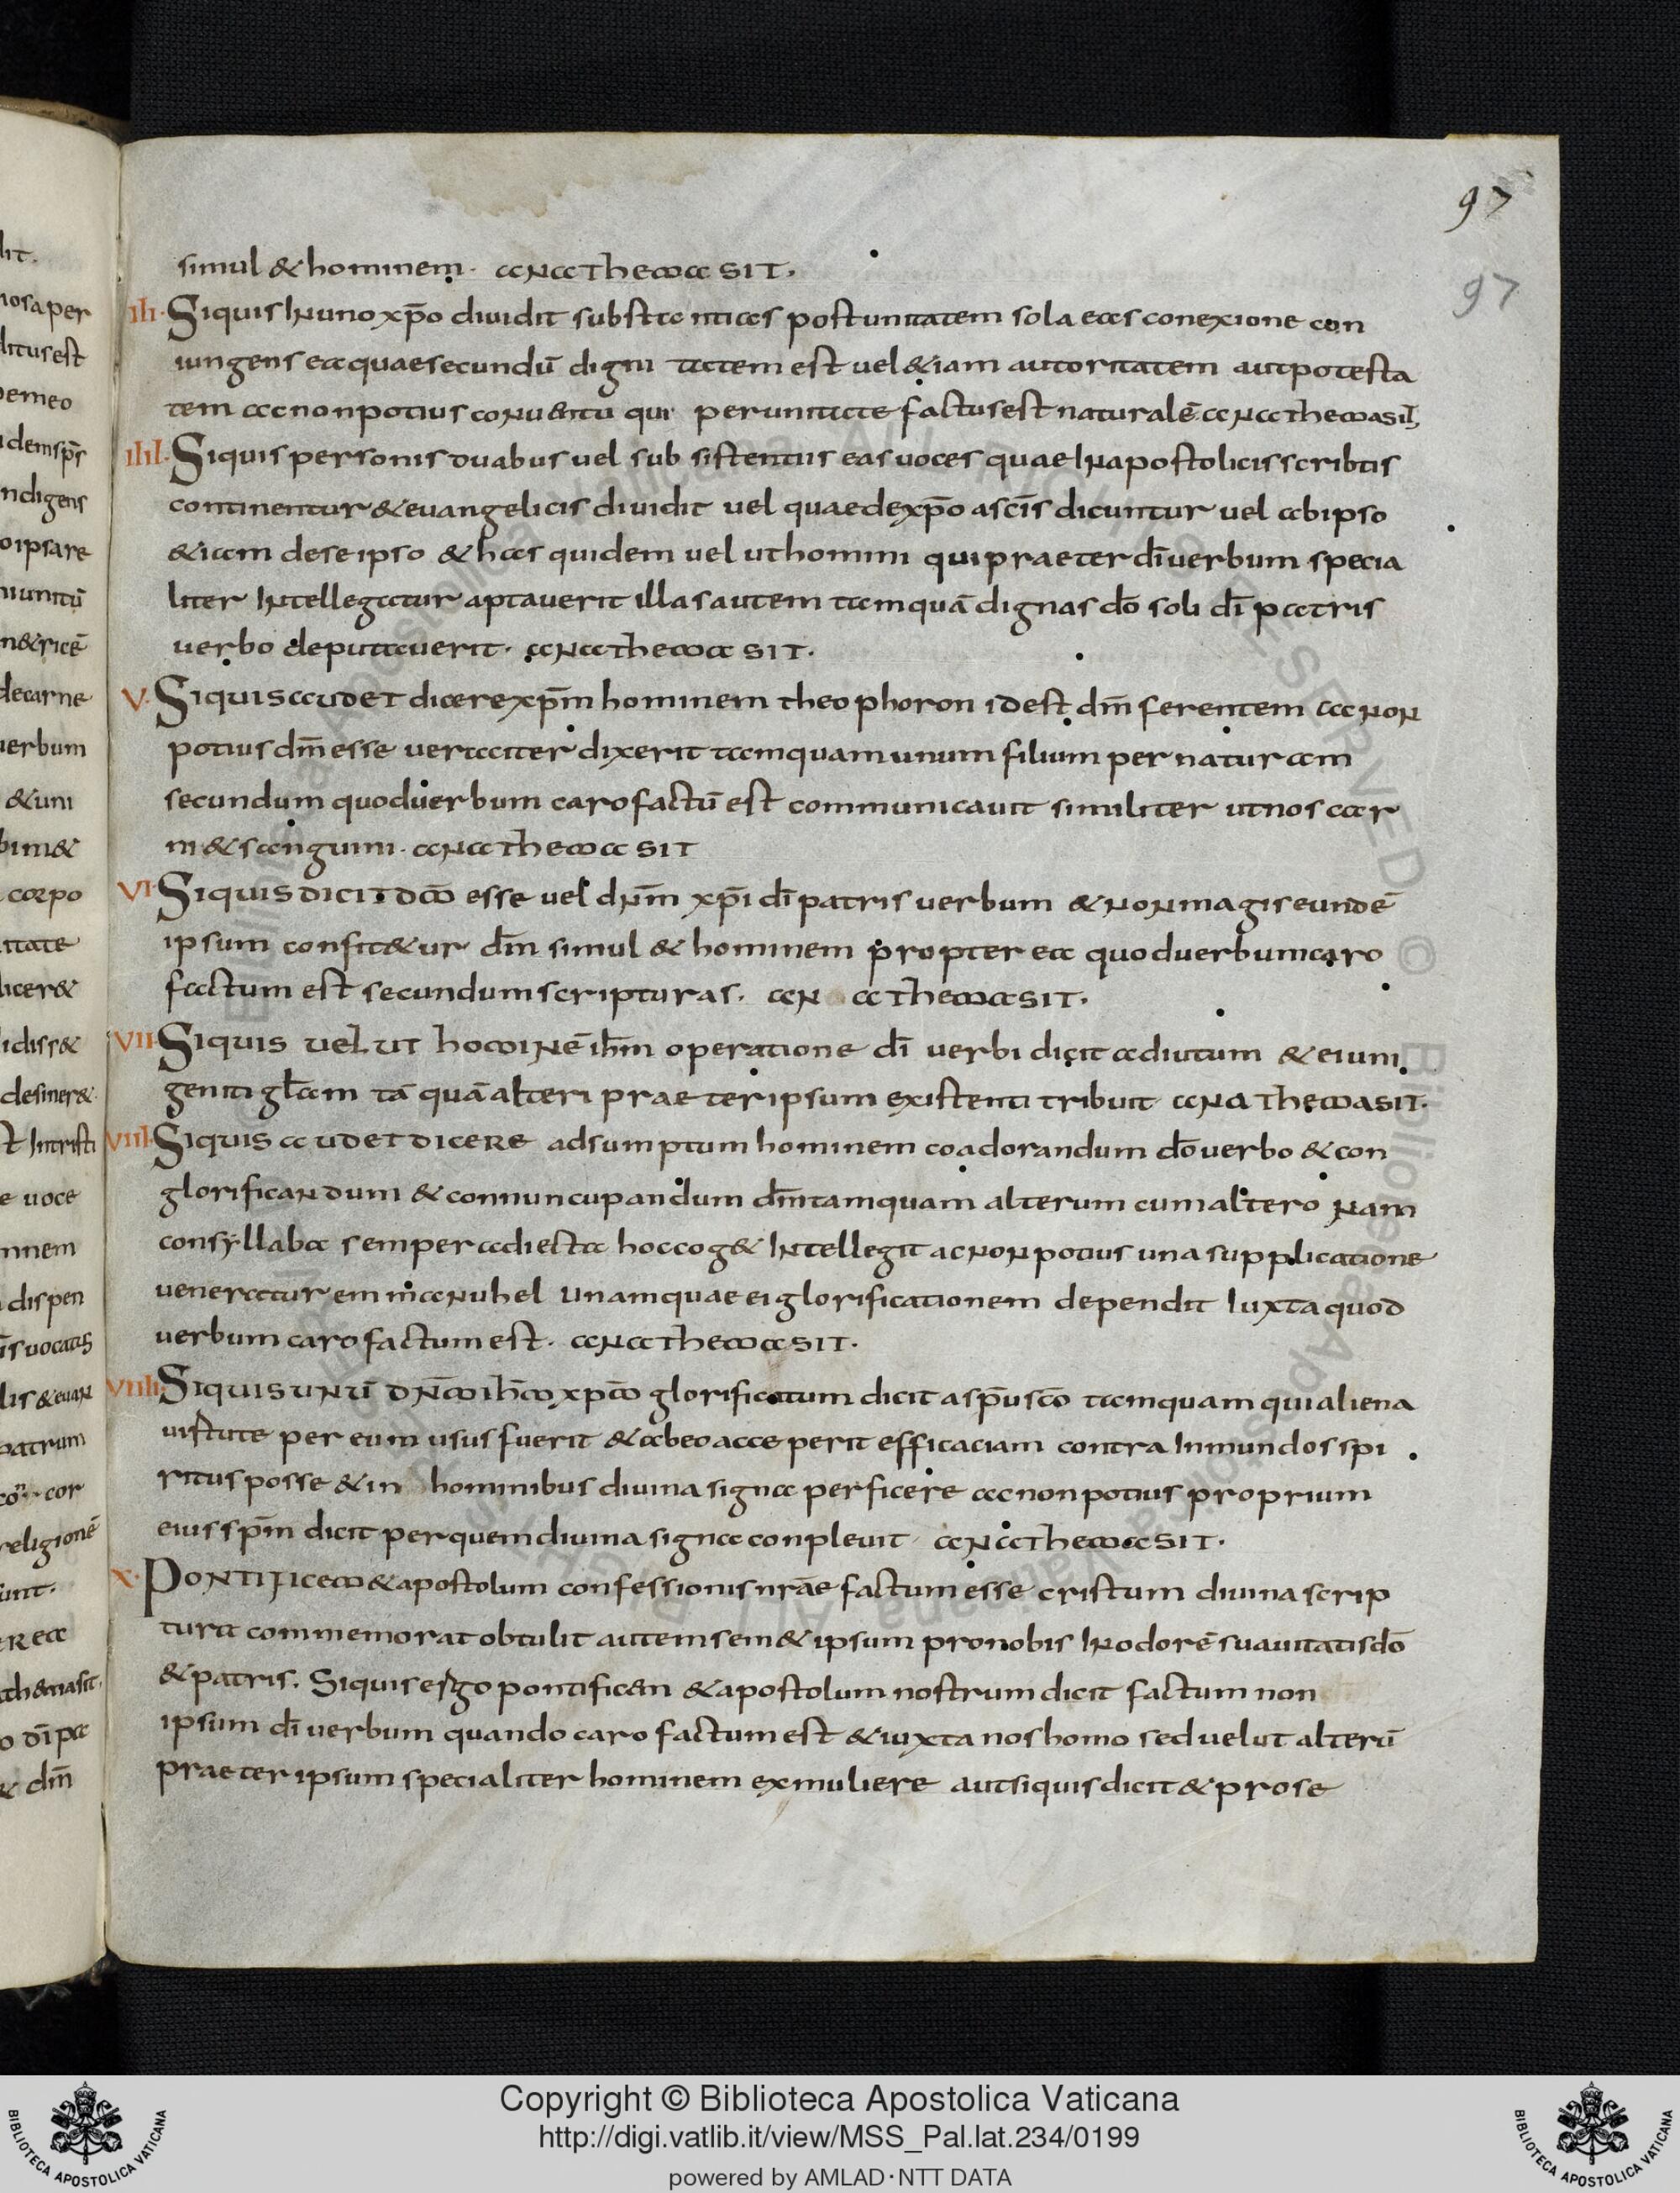 97
97
simul & hominem. ANATHEMA SIT.
III. Siquis In uno xp̄o diuidit substantias post unitatem sola eas conexione con
iungens ea quae secundū digni tatem est uel &iam autoritatem aut potesta
tem ac non potius conuentu qui per unitate factus est naturalē ANATHEMA SIT,
IIII. Siquis personis duabus uel sub sistentiis eas uoces quae In apostolicis scribtis
continentur & euangelicis diuidit uel quae de xp̄o a sc̄īs dicuntur uel ab ipso
&iam de se ipso & has quidem uel ut homini qui praeter dī uerbum specia
liter Intellegatur aptauerit illas autem tamquā dignas dō soli dī patris
uerbo deputauerit. ANATHEMA SIT.
V. Siquis audet dicere xp̄m hominem theophoron id est dm̄ ferentem ac non
potius dm̄ esse ueraciter dixerit tamquam unum filium per naturam
secundum quod uerbum caro factū est communicauit similiter ut nos car
ni & sanguini. ANATHEMA SIT
VI. Siquis dicit dm̄ esse uel dn̄m xp̄i dī patris uerbum & non magis eundē
ipsum confit&ur dm̄ simul & hominem propter ea quod uerbum caro
factum est secundum scripturas. AN ATHEMA SIT.
VII. Siquis uelut hominē ihm̄ operatione dī uerbi dicit adiutum & ei uni
geniti gl̄am tā quā alteri praeter ipsum existenti tribuit ANATHEMA SIT.
VIII. Siquis audet dicere adsumptum hominem coadorandum dō uerbo & con
glorificandum & connuncupandum dm̄ tamquam alterum cum altero nam
con syllaba semper adiecta hoc cog& Intellegit ac non potius una supplicatione
ueneratur emmanuhel unamquae ei glorificationem dependit Iuxta quod
uerbum caro factum est. ANATHEMA SIT.
VIIII. Siquis unū dn̄m ihm̄ xpm̄ glorificatum dicit a sp̄u sc̄o tamquam qui aliena
uirtute per eum usus fuerit & ab eo acceperit efficaciam contra Inmundos spi
ritus posse & in hominibus diuina signa perficere ac non potius proprium
eius sp̄m dicit per quem diuina signa conpleuit ANATHEMA SIT.
X. Pontificem & apostolum confessionis nr̄ae factum esse cristum diuina scrip
tura commemorat obtulit autem sem& ipsum pro nobis In odorē suauitatis dō
& patris. Siquis ergo pontificem & apostolum nostrum dicit factum non
ipsum dī uerbum quando caro factum est & iuxta nos homo sed uelut alterū
praeter ipsum specialiter hominem ex muliere aut siquis dicit & pro se
Copyright © Biblioteca Apostolica Vaticana
http://digi.vatlib.it/view/MSS_Pal.lat.234/0199
powered by AMLAD·NTT DATA
BIBLIOTECA APOSTOLICA VATICANA
BIBLIOTECA APOSTOLICA VATICANA